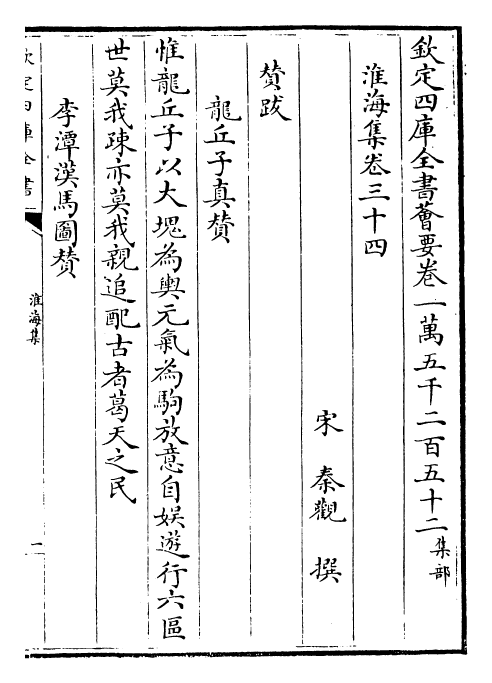 欽定四庫全書薈要卷一萬五千二百五十二集部
淮海集卷三十四
宋 秦觀 撰
贊跋
龍丘子真贊
惟龍丘子以大塊為輿元氣為駒放意自娛遊行六區
世莫我疎亦莫我親追配古者葛天之民
李潭漢馬圖贊
欽定四庫全書
淮海集
一